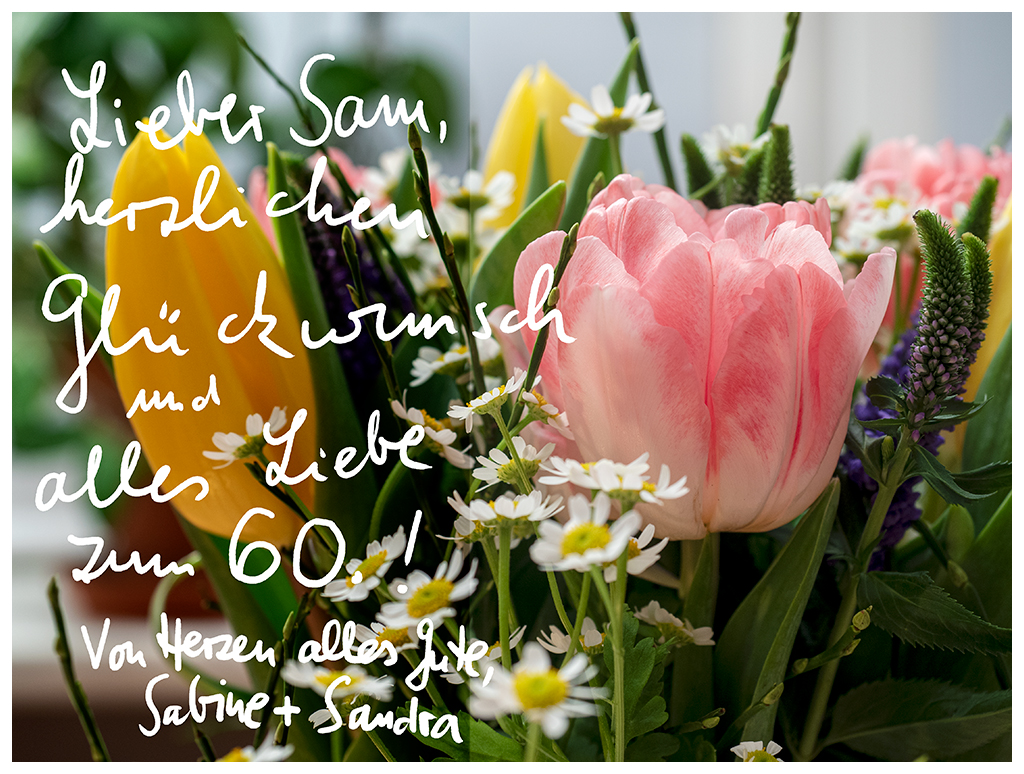 Lieber Sam,
herzlichen
Glückwunsch
und
alles Liebe
zum 60.!
Von Herzen alles Gute,
Sabine + Sandra